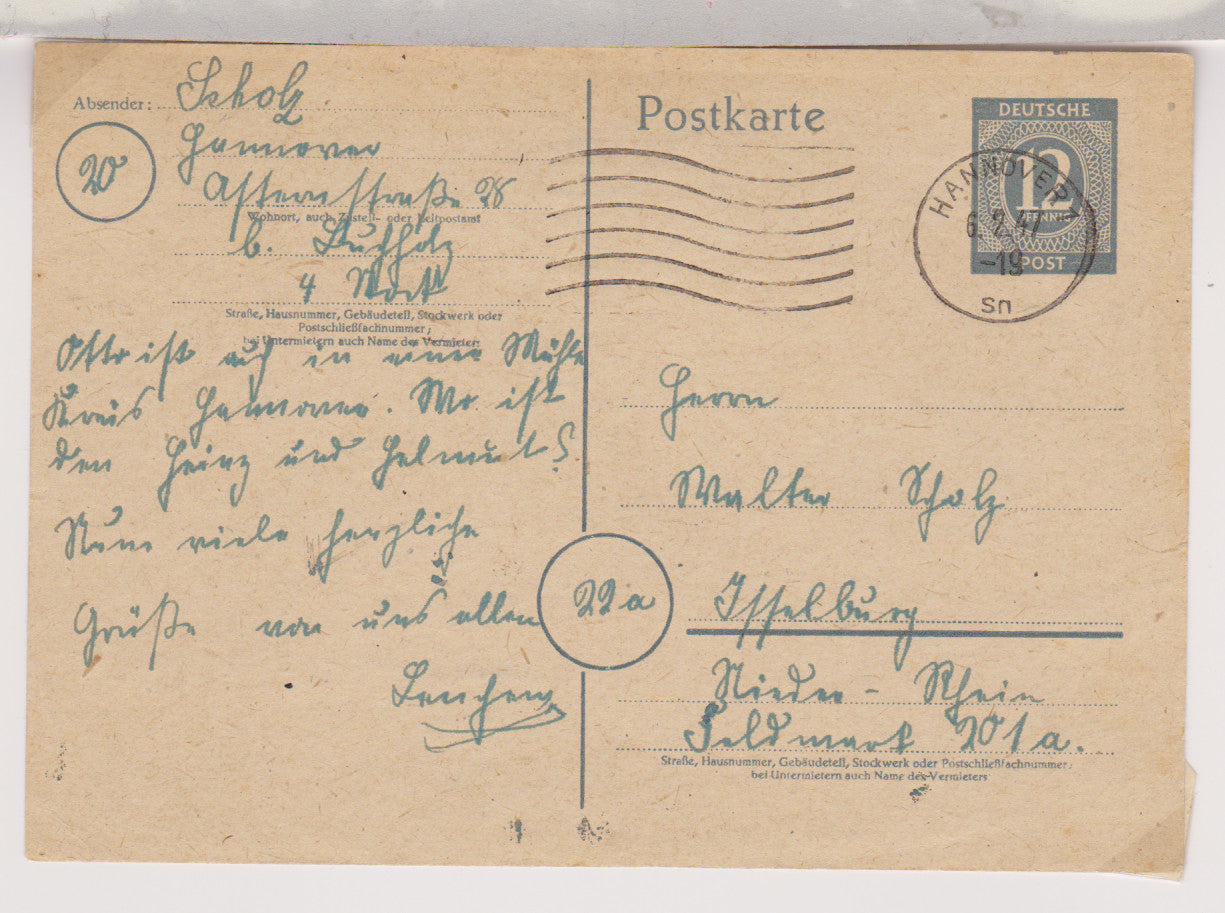 Absender: Scholz
20
Hannover
Asternstraße 28
Wohnort, auch Zustell- oder Leitpostamt
b. Buchholz
4
Straße, Hausnummer, Gebäudeteil, Stockwerk oder
Postschließfachnummer;
bei Untermietern auch Name des Vermieters
Otto ist auch in einer Mühle
Kreis Hannover. Wo ist
den Heinz und Helmut?
Nun viele herzliche
Grüße von uns allen
Lenchen
Postkarte
DEUTSCHE
12
PFENNIG
POST
HANNOVER 1
47
-19
Sn
Herrn
Walter Scholz
22a Isselburg
Nieder-Rhein
Feldmark 201a.
Straße, Hausnummer, Gebäudeteil, Stockwerk oder Postschließfachnummer;
bei Untermietern auch Name des Vermieters